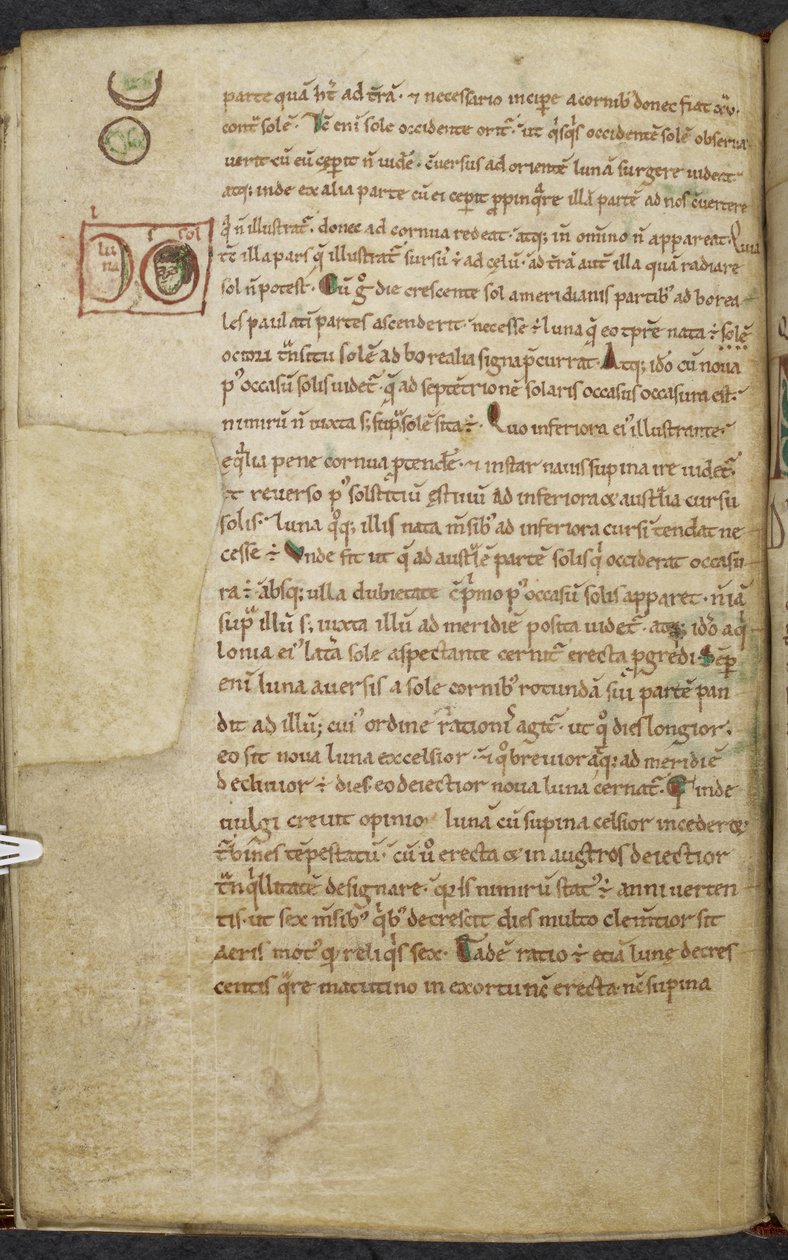 luna
sol
parte quā h̄t ad t̄rā · ⁊ necessario incip̄e a cornib' donec fiat xv·
cont̄ solē · Tc̄ eni sole occidente orit̄ · ut q'sq's occidentē solē observa
verit cū eū cęperit n̄ vidē · c̄versus ad orientē lunā surgere videat
atq; inde ex alia parte cū ei cepit ꝓpinq̄re illā partē ad nos c̄vertere
q̄ n̄ illustrat̄ · donec ad cornua redeat · atq; in omino n̄ appareat · Luna
illa pars q̄ illustrat̄ sursū ÷ ad celū · ad t̄rā autē illa quā radiare
sol n̄ potest · Cū g° die crescente sol ameridianis partib' ad borea
les paulatī partes ascenderit · necesse ÷ luna q̄ eo tp̄re nata ÷ solē
t̄nsitu solē ad borealia signa p̄currat · Atq; id̄o cū nova
p' occasū solis videt̄ · q̄ ad septētrionē solaris occasus occasura est ·
nimirū n̄ iuxta s; sup̄ solē sita ÷ · Quo inferiora ei' illustrante ·
eq̄lia pene cornua p̄tendē · ⁊ instar navis supina ire videt̄ ·
At reverso p' solstitiū ęstivū ad inferiora & aust̄lia cursu
solis · luna q°q; illis nata m̄sib' ad inferiora cursū tendat ne
cesse ÷ Unde fit ut q̄ ad aust̄lē partē solis q' occiderat occasu
ra ÷ · absq; ulla dubietate c̄ p'mo p' occasū solis apparet · n̄ iā
sup̄ illū s; iuxta illū ad meridiē posita videt̄ · atq; id̄o aq'
lonia ei' lat̄a sole aspectante cernit̄ erecta ꝓgredi · Sēp
eni luna aversis a sole cornib' rotundā sui partē pan
dit ad illū; cui' ordine rationis agit̄ · ut q° dies longior ·
eo sit nova luna excelsior · ⁊ q° brevior atq; ad meridiē
declivior ÷ dies · eo deiectior nova luna cernat̄ · inde
vulgi crevit opinio lunā cū supina celsior incederet
t̄bines tēpestatū · cū v° erecta & in austros deiectior
t̄nq'llitatē designare · q̄ is nimirū stat' ÷ anni verten
tis · ut sex m̄sib' q'b' decrescit dies multo clem̄tior sit
aeris mot' quā reliq's sex · Eadē ratio ÷ etiā lune decres
centis q̄re matutino in exortu nē erecta · nē supina